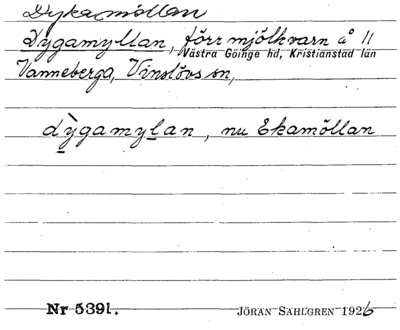 Dykamöllan
Dygamyllan, förr mjölkvarn å 11
Västra Göinge hd, Kristianstad län
Vanneberga, Vinslövs sn,
dỳ̱gamyḻan, nu Ekamöllan
Nr 5391.
JÖRAN SAHLGREN 1926